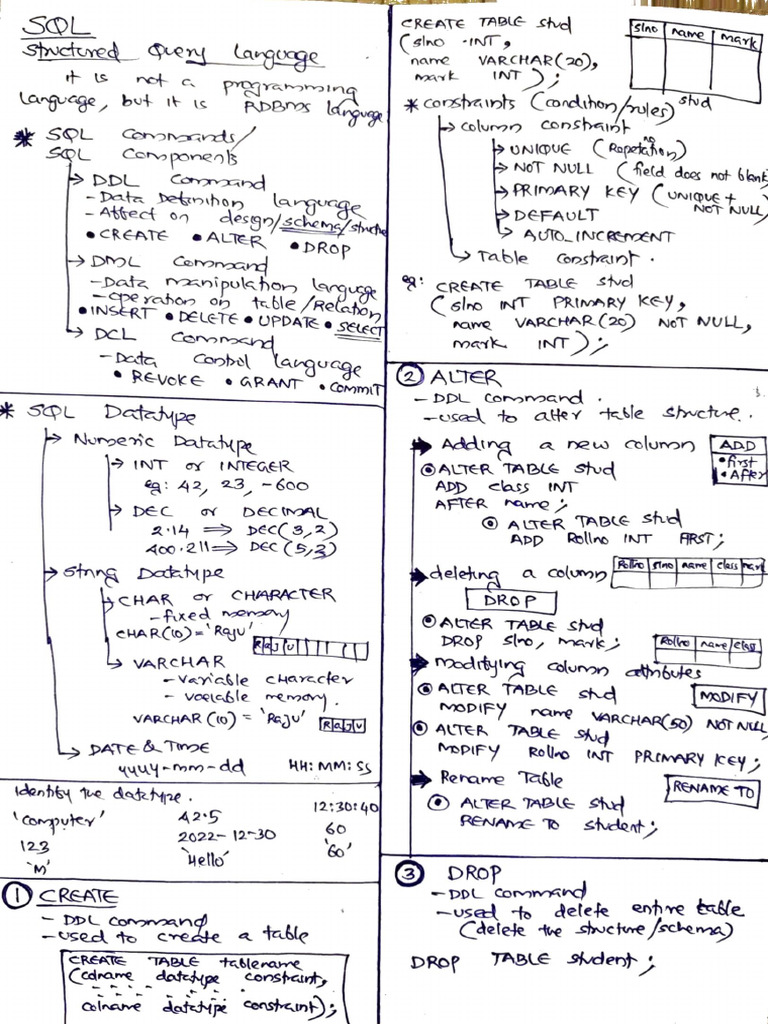 SQL
Structured Query Language
it is not a programming
language, but it is RDBMS language
* SQL Commands/
SQL Components
→ DDL Command
- Data Definition language
- Affect on design/schema/structure
• CREATE • ALTER • DROP
→ DML Command
- Data manipulation language
- operation on table/Relation
• INSERT • DELETE • UPDATE • SELECT
→ DCL Command
- Data Control language
• REVOKE • GRANT • COMMIT
* SQL Datatype
→ Numeric Datatype
→ INT or INTEGER
eg: 42, 23, -600
→ DEC or DECIMAL
2.14 ⇒ DEC(3,2)
400.211 ⇒ DEC(5,3)
→ String Datatype
→ CHAR or CHARACTER
- fixed memory
CHAR(10) = 'Raju' R a j u
→ VARCHAR
- variable character
- variable memory.
VARCHAR(10) = 'Raju' R a j u
→ DATE & TIME
yyyy-mm-dd HH:MM:SS
Identify the datatype.
'computer' 42.5 12:30:40
123 2022-12-30 60
'M' 'Hello' '60'
① CREATE
- DDL command
- used to create a table
CREATE TABLE tablename
(colname datatype constraint,
colname datatype constraint);
CREATE TABLE stud
(slno INT,
name VARCHAR(20),
mark INT);
slno name mark
stud
* constraints (condition/rules)
→ column constraint
→ UNIQUE (no Repetation)
→ NOT NULL (field does not blank)
→ PRIMARY KEY (UNIQUE +
NOT NULL)
→ DEFAULT
→ AUTO_INCREMENT
→ Table constraint.
eg: CREATE TABLE stud
(slno INT PRIMARY KEY,
name VARCHAR(20) NOT NULL,
mark INT);
② ALTER
- DDL command.
- used to alter table structure..
→ Adding a new column
ADD
• first
• After
ALTER TABLE stud
ADD class INT
AFTER name;
ALTER TABLE stud
ADD Rollno INT FIRST;
Rollno slno name class mark
→ deleting a column
DROP
ALTER TABLE stud
DROP slno, mark;
Rollno name class
→ modifying column attributes
MODIFY
ALTER TABLE stud
MODIFY name VARCHAR(50) NOT NULL
ALTER TABLE stud
MODIFY Rollno INT PRIMARY KEY;
→ Rename Table
RENAME TO
ALTER TABLE stud
RENAME TO student;
③ DROP
- DDL command
- used to delete entire table
(delete the structure/schema)
DROP TABLE student;